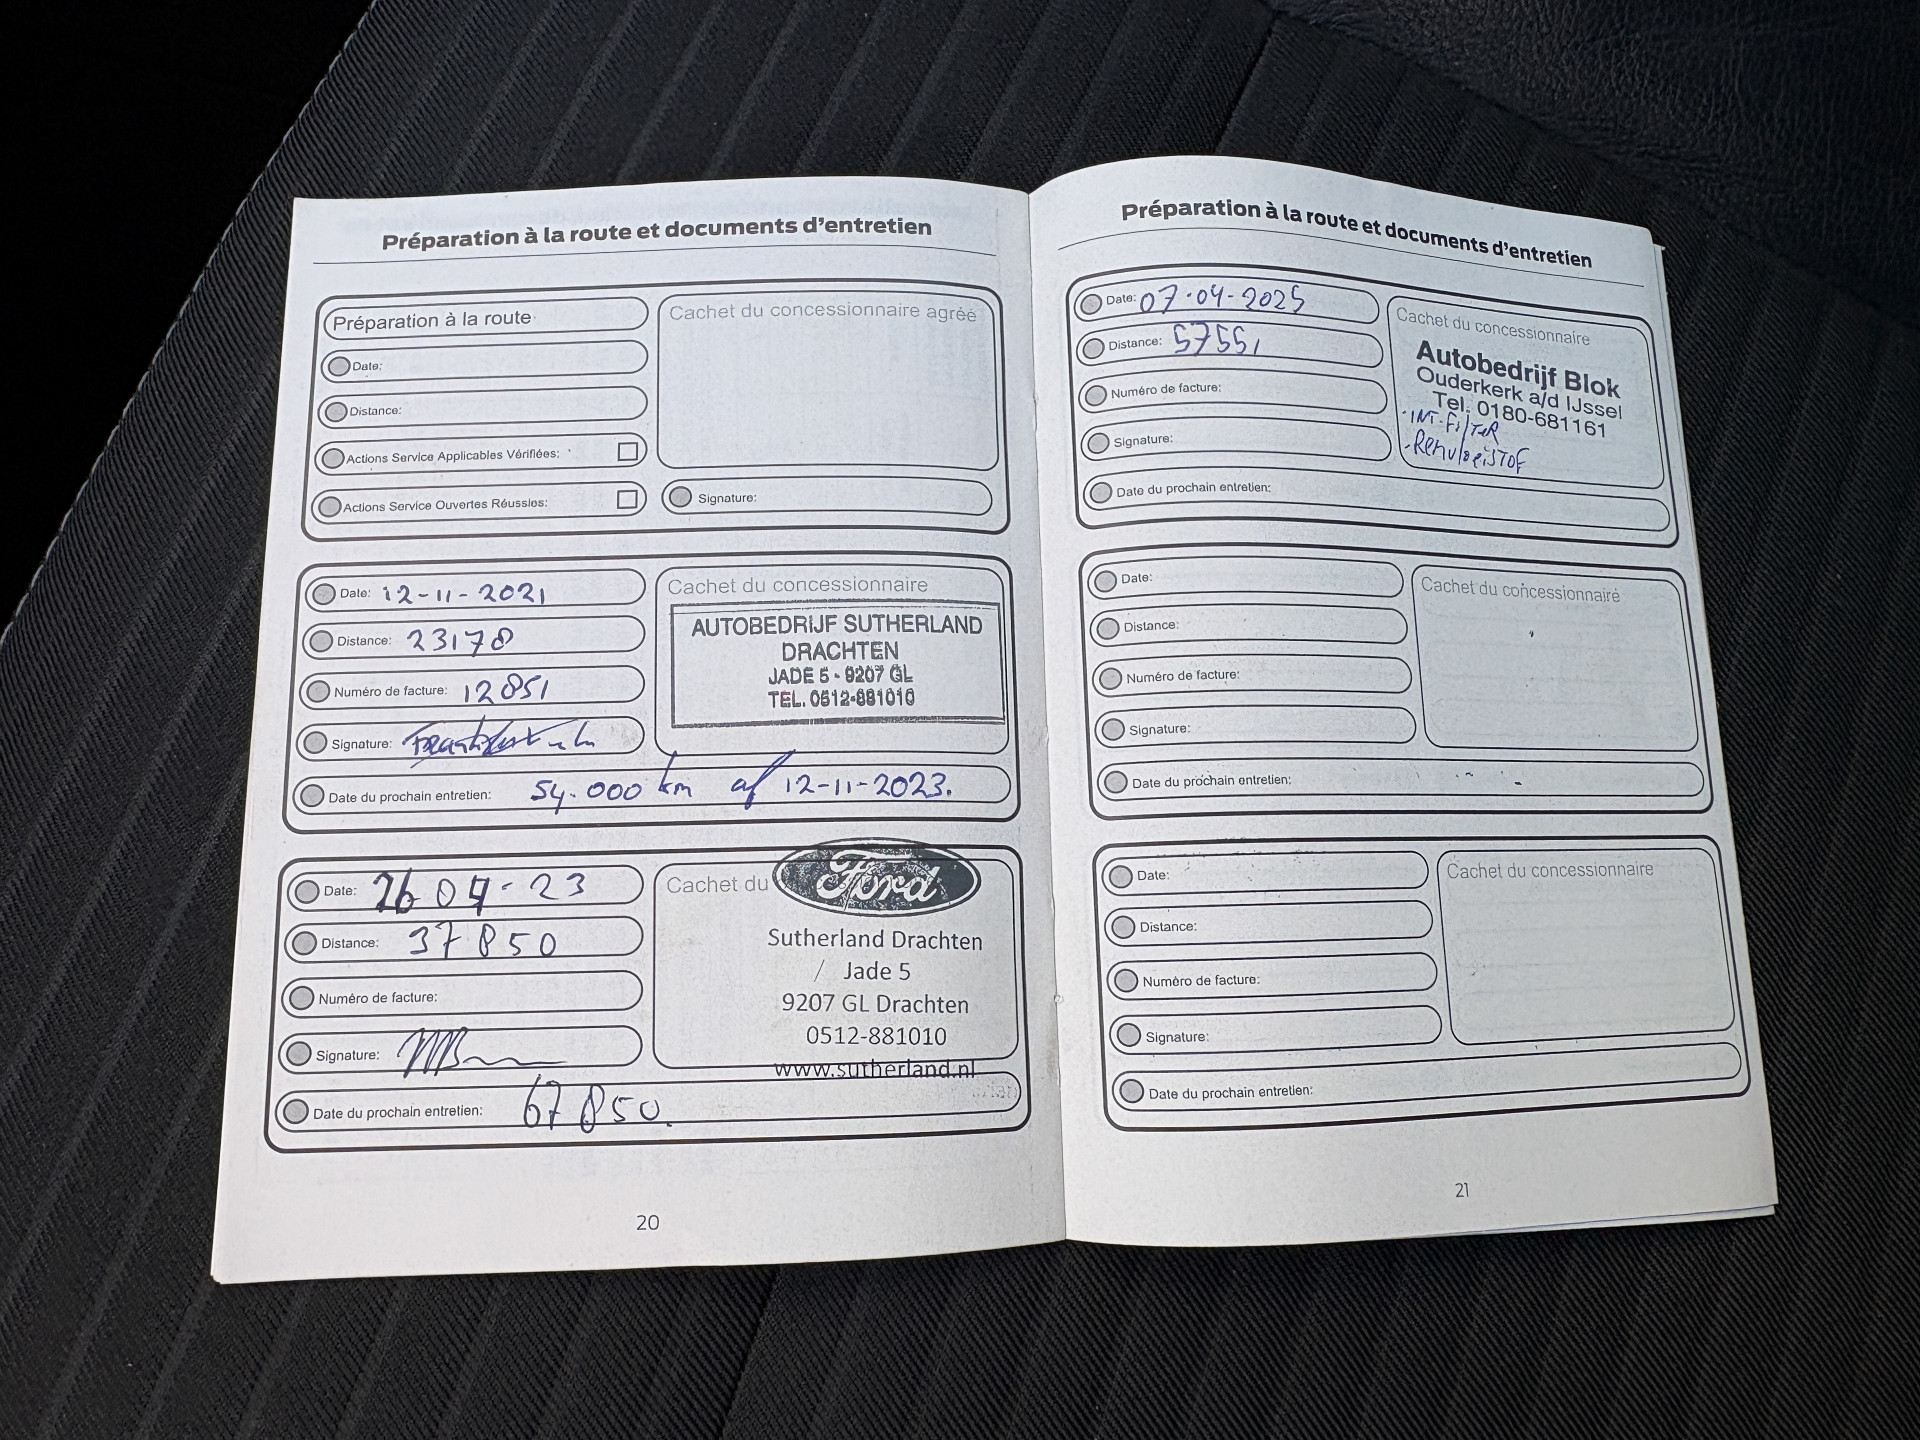 Préparation à la route et documents d'entretien
Préparation à la route
Date:
Distance:
Actions Service Applicables Vérifiées:
Actions Service Ouvertes Réussies:
Cachet du concessionnaire agréé
Signature:
Date: 12-11-2021
Distance: 23178
Numéro de facture: 12851
Signature:
Date du prochain entretien: 54.000 km of 12-11-2023.
Cachet du concessionnaire
AUTOBEDRIJF SUTHERLAND
DRACHTEN
JADE 5 - 9207 GL
TEL. 0512-881010
Date: 26 04-23
Distance: 37850
Numéro de facture:
Signature:
Date du prochain entretien: 67850.
Cachet du
Ford
Sutherland Drachten
/ Jade 5
9207 GL Drachten
0512-881010
www.sutherland.nl
20
Préparation à la route et documents d'entretien
Date: 07-04-2025
Distance: 57551
Numéro de facture:
Signature:
Date du prochain entretien:
Cachet du concessionnaire
Autobedrijf Blok
Ouderkerk a/d IJssel
Tel. 0180-681161
-INT. FilTeR
-RemvloeiSTOF
Date:
Distance:
Numéro de facture:
Signature:
Date du prochain entretien:
Cachet du concessionnaire
Date:
Distance:
Numéro de facture:
Signature:
Date du prochain entretien:
Cachet du concessionnaire
21